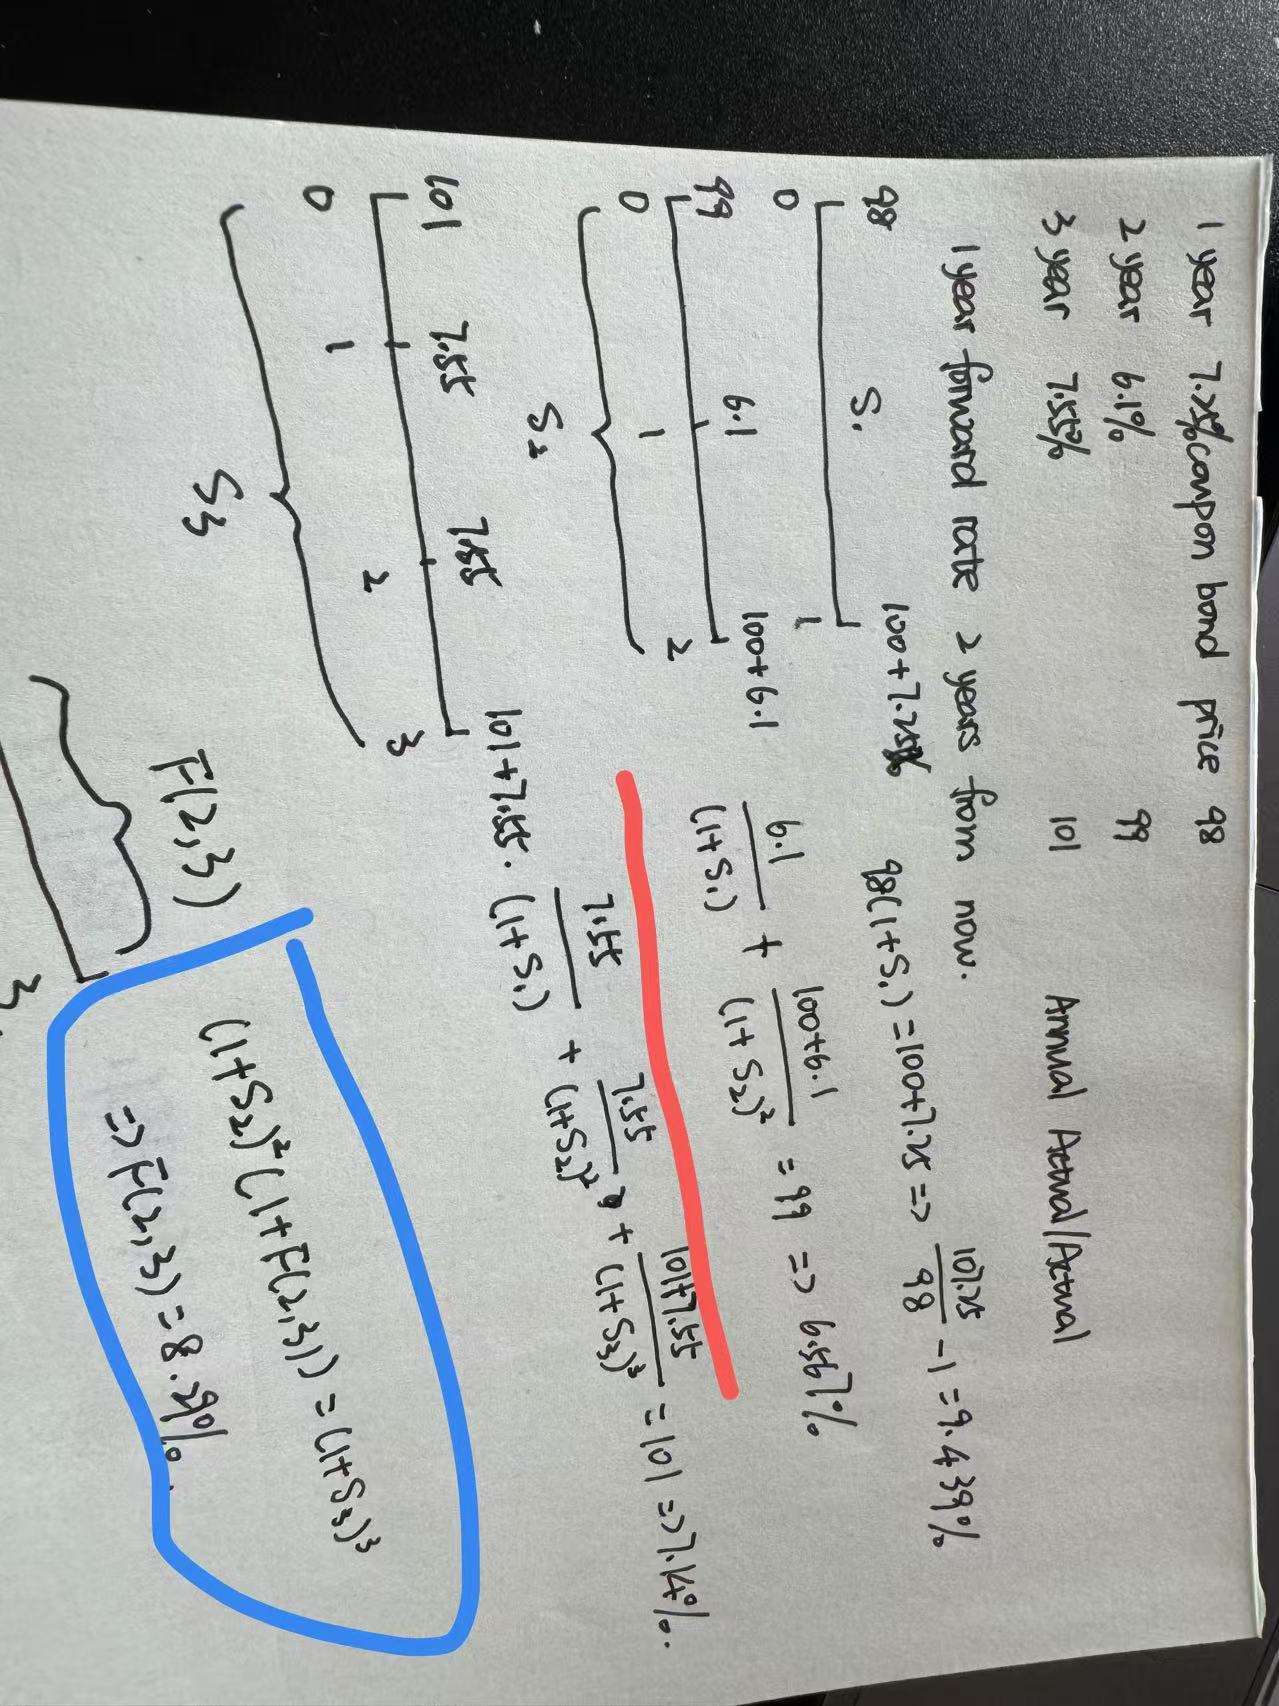 1 year 7.25% coupon bond price 98
2 year 6.1% 99
3 year 7.55% 101 Annual Actual/Actual
1 year forward rate 2 years from now.
98 S₁ 100+7.25% 98(1+S₁)=100+7.25 => 107.25/98 -1=9.439%
0 1
99 6.1 100+6.1 6.1/(1+S₁) + 100+6.1/(1+S₂)² =99 => 6.567%
0 1 2
S₂
101 7.55 7.55 101+7.55. 7.55/(1+S₁) + 7.55/(1+S₂)² + 101+7.55/(1+S₃)³ =101 =>7.14%.
0 1 2 3
S₃
F(2,3) (1+S₂)²(1+F(2,3))=(1+S₃)³
=>F(2,3)=8.29%.
3